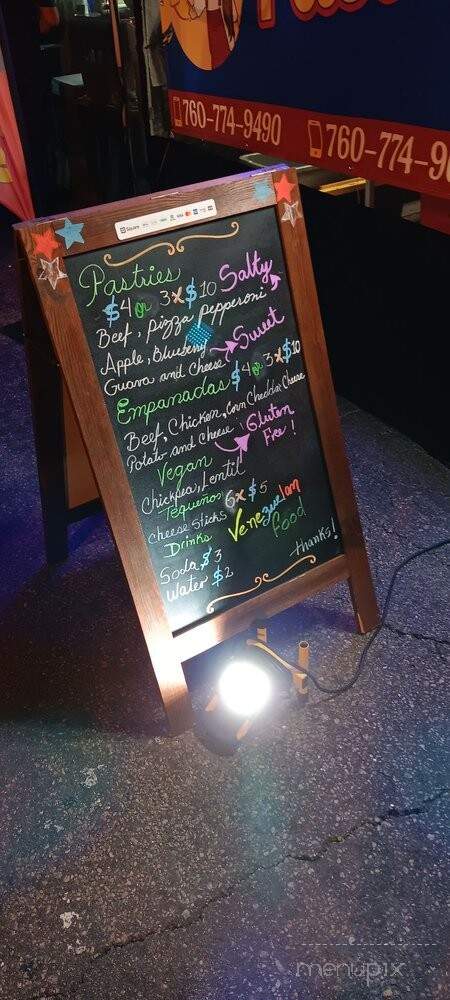 760-774-9490
760-774-9
Square VISA
Pastries
$4 or 3x$10 Salty
Beef, pizza pepperoni
Apple, Blueberry Sweet
Guava and cheese
Empanadas $4 or 3x$10
Beef, Chicken, Corn Cheddar Cheese
Potato and cheese Gluten
Free!
Vegan
Chickpea, Lentil
Tequeños 6x$5
Cheese sticks
Venezuelan
Food
Drinks
Soda $3
Water $2
thanks!
menupix